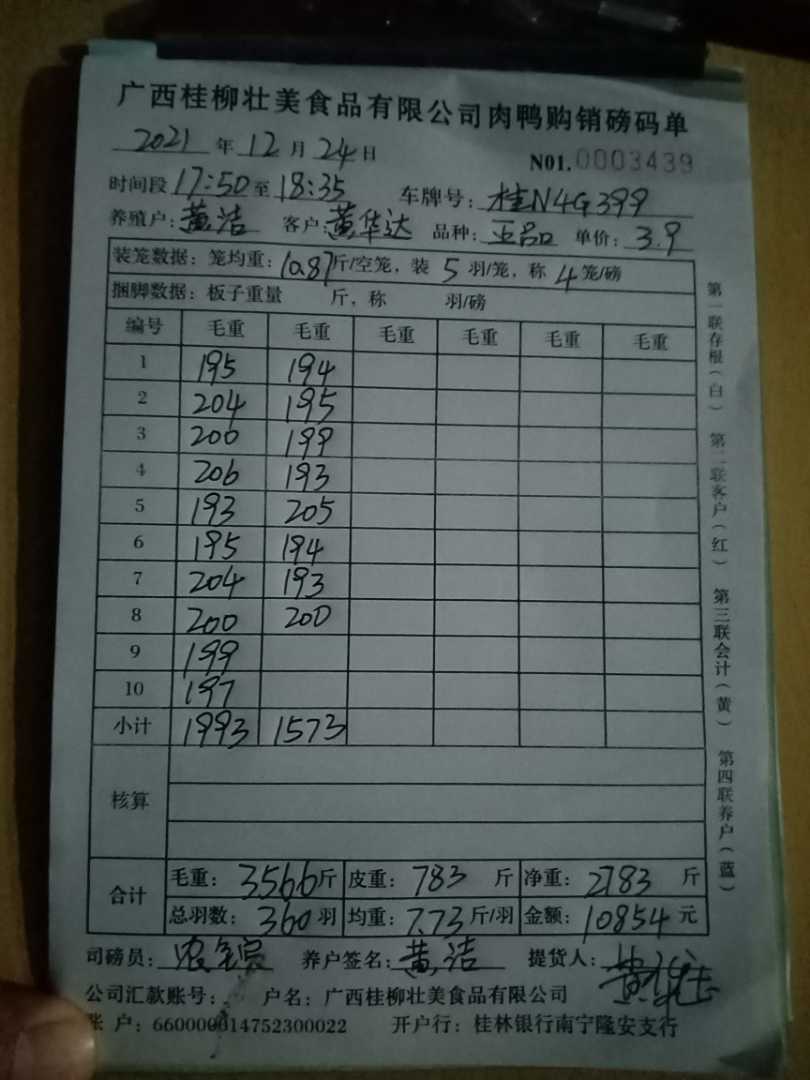 广西桂柳壮美食品有限公司肉鸭购销磅码单
2021 年 12 月 24 日 N01. 0003439
时间段 17:50 至 18:35 车牌号: 桂N4G399
养殖户: 黄洁 客户: 黄华达 品种: 王品 单价: 3.9
装笼数据: 笼均重: 10.87 斤/空笼, 装 5 羽/笼, 称 4 笼/磅
捆脚数据: 板子重量 斤, 称 羽/磅
编号 毛重 毛重 毛重 毛重 毛重 毛重
1 195 194
2 204 195
3 200 199
4 206 193
5 193 205
6 195 194
7 204 193
8 200 200
9 199
10 197
小计 1993 1573
核算
合计 毛重: 3566 斤 皮重: 783 斤 净重: 2783 斤
总羽数: 360 羽 均重: 7.73 斤/羽 金额: 10854 元
司磅员: 养户签名: 黄洁 提货人: 黄华达
公司汇款账号: 户名: 广西桂柳壮美食品有限公司
账 户: 660000014752300022 开户行: 桂林银行南宁隆安支行
第一联存根(白) 第二联客户(红) 第三联会计(黄) 第四联养户(蓝)